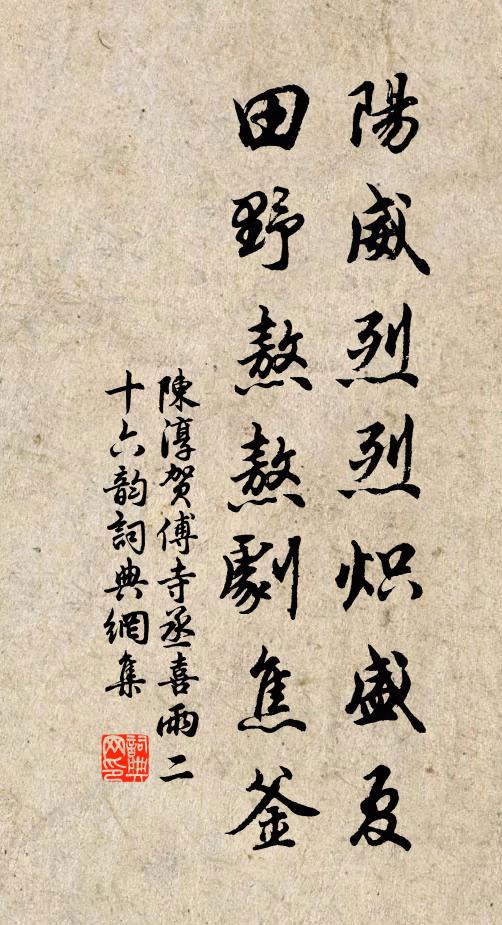 陽威烈烈炽盛夏
田野熬熬劇焦釜
陳淳贺傅寺丞喜雨二
十六韵詞典網集
詞典
网印